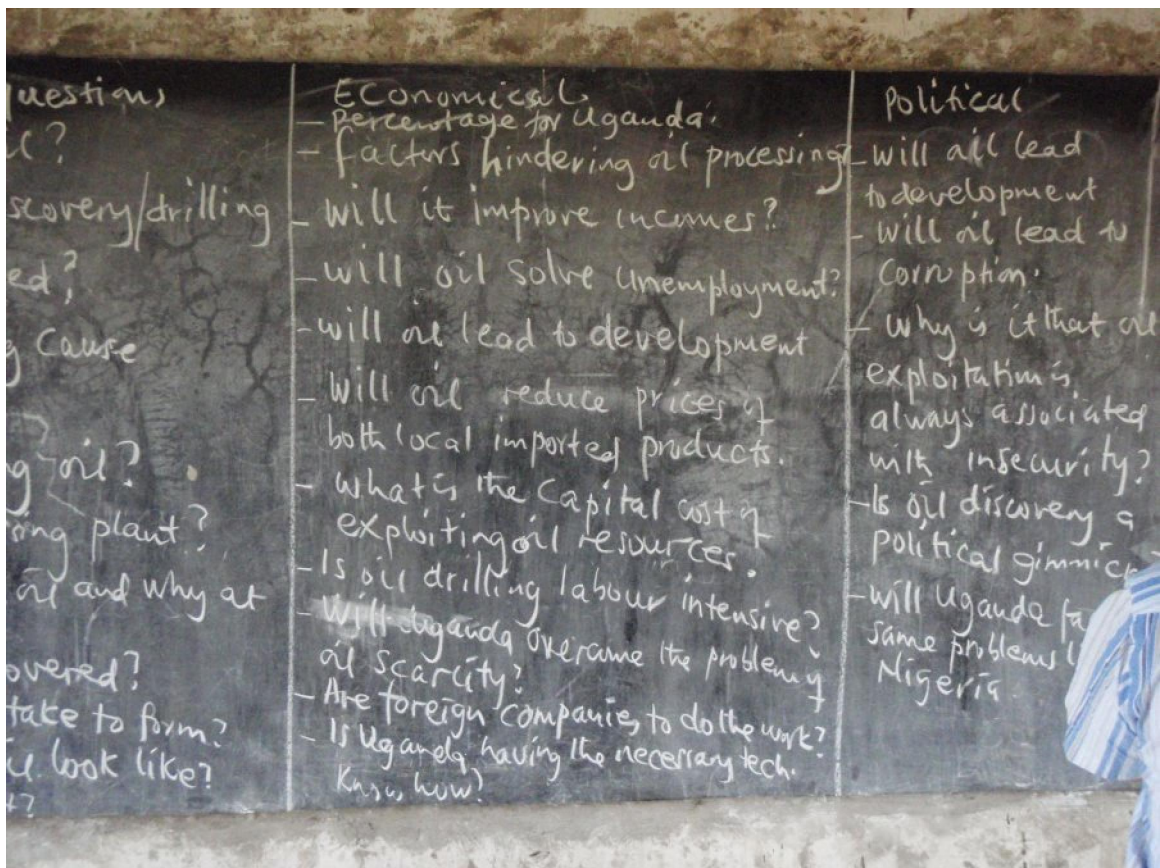 questions
?
scovery/drilling
ed?
g cause
ng oil?
plant?
oil and why at
overed?
take to form?
look like?
?
Economical
- Percentage for Uganda.
- factors hindering oil processing
- will it improve incomes?
- will oil solve unemployment?
- will oil lead to development
- Will oil reduce prices of
both local imported products.
- What is the Capital cost of
exploiting oil resources.
- Is oil drilling labour intensive?
- Will Uganda overcame the problem of
oil scarcity?
- Are foreign companies to do the work?
- Is Uganda having the necessary tech.
Know how?
Political
- will oil lead
to development
- will oil lead to
corruption.
- why is it that oil
exploitation is
always associated
with insecurity?
- Is oil discovery a
political gimmick
- will Uganda fa
same problems
Nigeria.